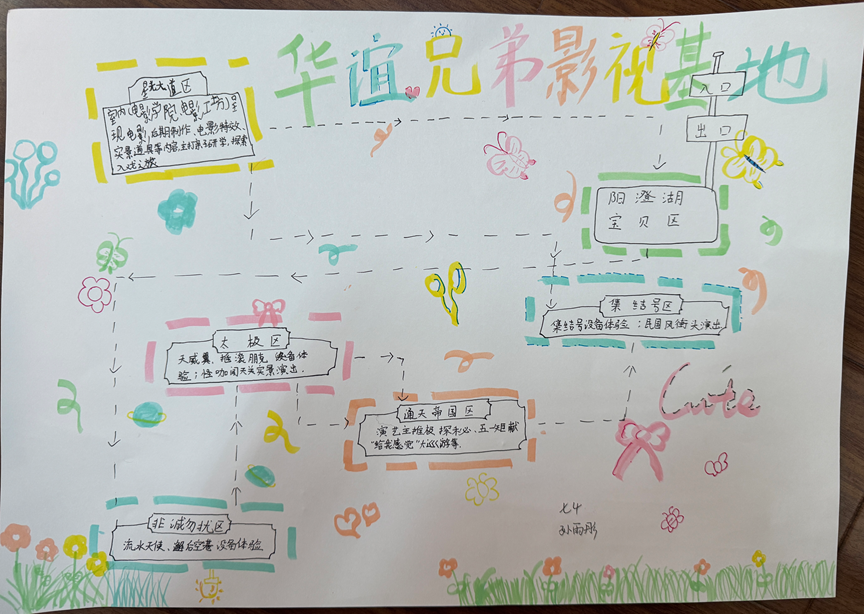 华谊兄弟影视基地
入口
出口
星光大道区
室内(电影学院,电影工场)呈
现电影,后期制作、电影特效、
实景道具等内容,主打亲子研学,探索
入戏之旅
阳澄湖
宝贝区
集结号区
集结号设备体验;民国风街头演出
太极区
天威翼、摇滚朋克 设备体
验;怪咖闹天关实景演出.
通天帝国区
演艺主推极探未必、五一献
"给我感觉"大巡游等.
非诚勿扰区
流水天使、邂后空港 设备体验
Cute
七4
孙雨彤